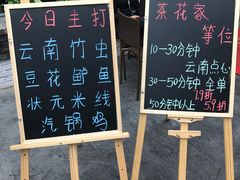 今日主打
云南竹虫
豆花鲈鱼
状元米线
汽锅鸡
茶花家
等位
10-30分钟
云南点心
30-50分钟 全单
9折
50分钟以上
5.9折